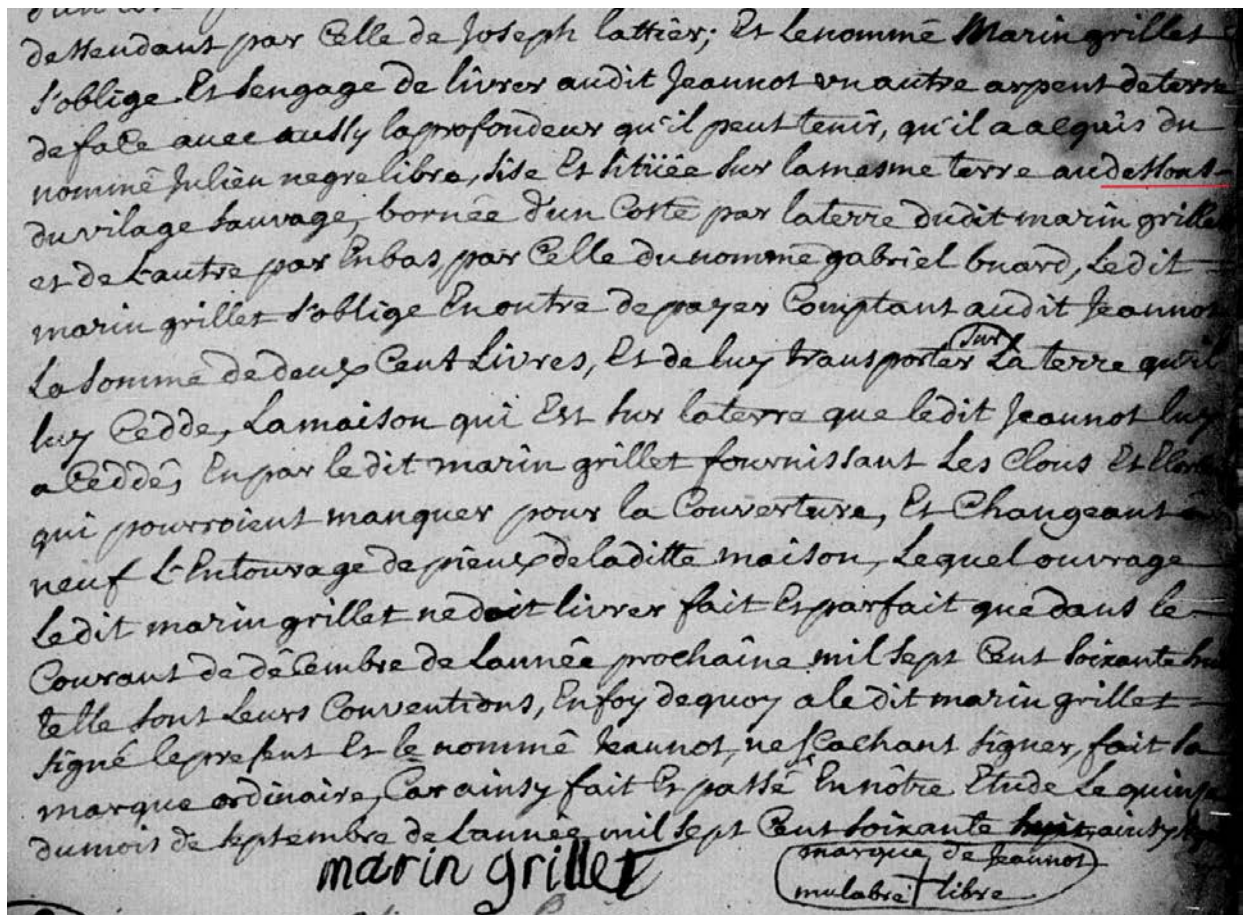 dessendant par Celle de Joseph lattier; Et Lenommé Marin grillet
s'oblige Et sengage de livrer audit Jeannot un autre arpent de terre
de face avec aussy la profondeur qu'il peut tenir, qu'il a acquis du
nommé Julien negre libre, sise Et sitüée sur la mesme terre au dessous
du vilage sauvage, bornée d'un Costé par la terre dudit marin grillet
et de L'autre par Enbas, par Celle du nommé gabriel buard, Ledit
marin grillet s'oblige En outre de payer Comptant audit Jeannot
La somme de deux Cent Livres, Et de luy transporter sur La terre qu'il
luy Cedde, La maison qui Est sur la terre que ledit Jeannot luy
a Ceddé, En par le dit marin grillet fournissant Les Clous Et
qui pourroient manquer pour la Couverture, Et Changeant à
neuf L'Entourage de pieux de laditte maison, Lequel ouvrage
Ledit marin grillet ne doit livrer fait Et parfait que dans le
Courant de décembre de Lannée prochaine mil sept Cent soixante
telle sont Leurs Conventions, En foy dequoy a le dit marin grillet
signé le present Et le nommé Jeannot, ne sçachant signer, fait sa
marque ordinaire, Car ainsy fait Et passé En nôtre Etude Le quinze
du mois de septembre de Lannée mil sept Cent soixante ainsy
marin grillet
marque de Jeannot
mulabre libre